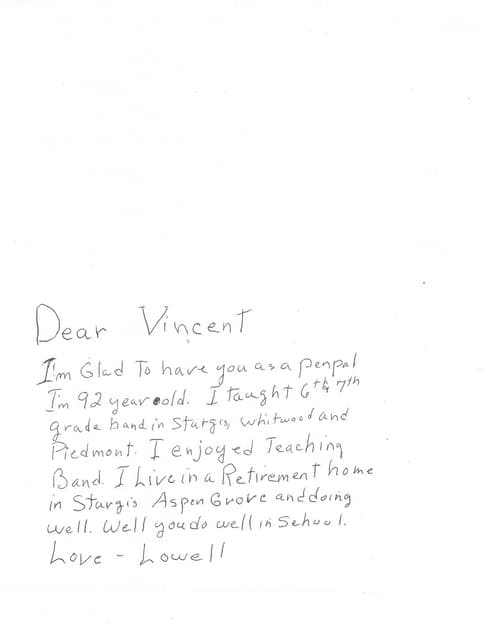 Dear Vincent
I'm Glad To have you as a penpal
I'm 92 year old. I taught 6th & 7th
grade band in Sturgis, Whitwood and
Piedmont. I enjoyed Teaching
Band. I Live in a Retirement home
in Sturgis Aspen Grove and doing
well. Well you do well in School.
Love - Lowell